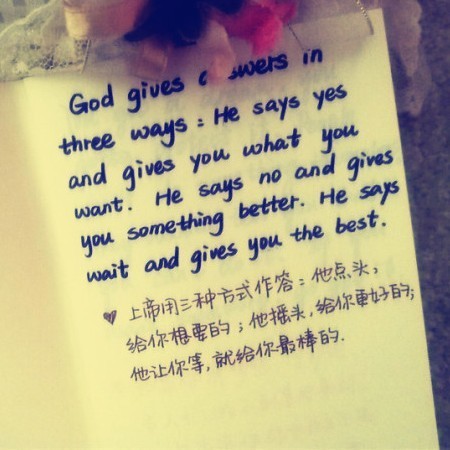 God gives answers in
three ways: He says yes
and gives you what you
want. He says no and gives
you something better. He says
wait and gives you the best.
♥ 上帝用三种方式作答：他点头，
给你想要的；他摇头，给你更好的；
他让你等，就给你最棒的.